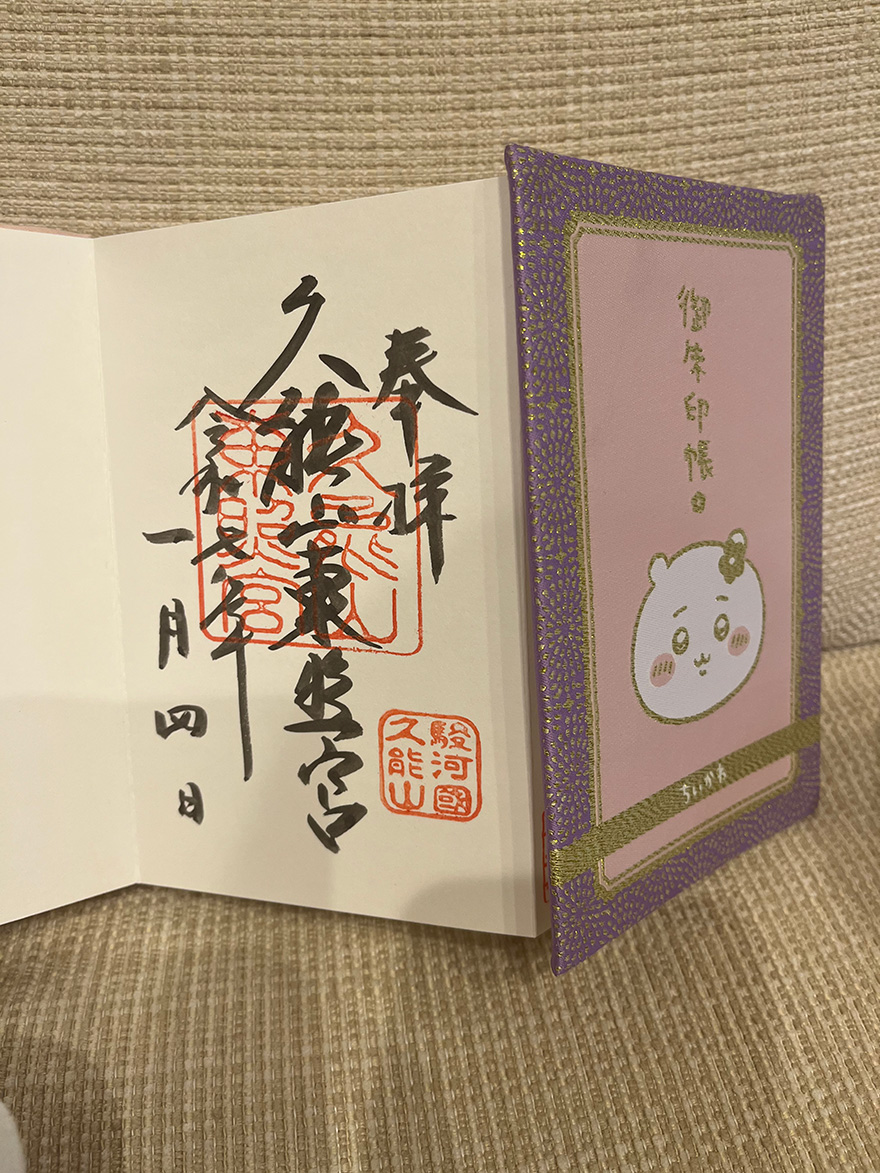 奉拝
久能山東照宮
令和七年
一月四日
久能山
東照宮
駿河國
久能山
御朱印帳
ちいかわ